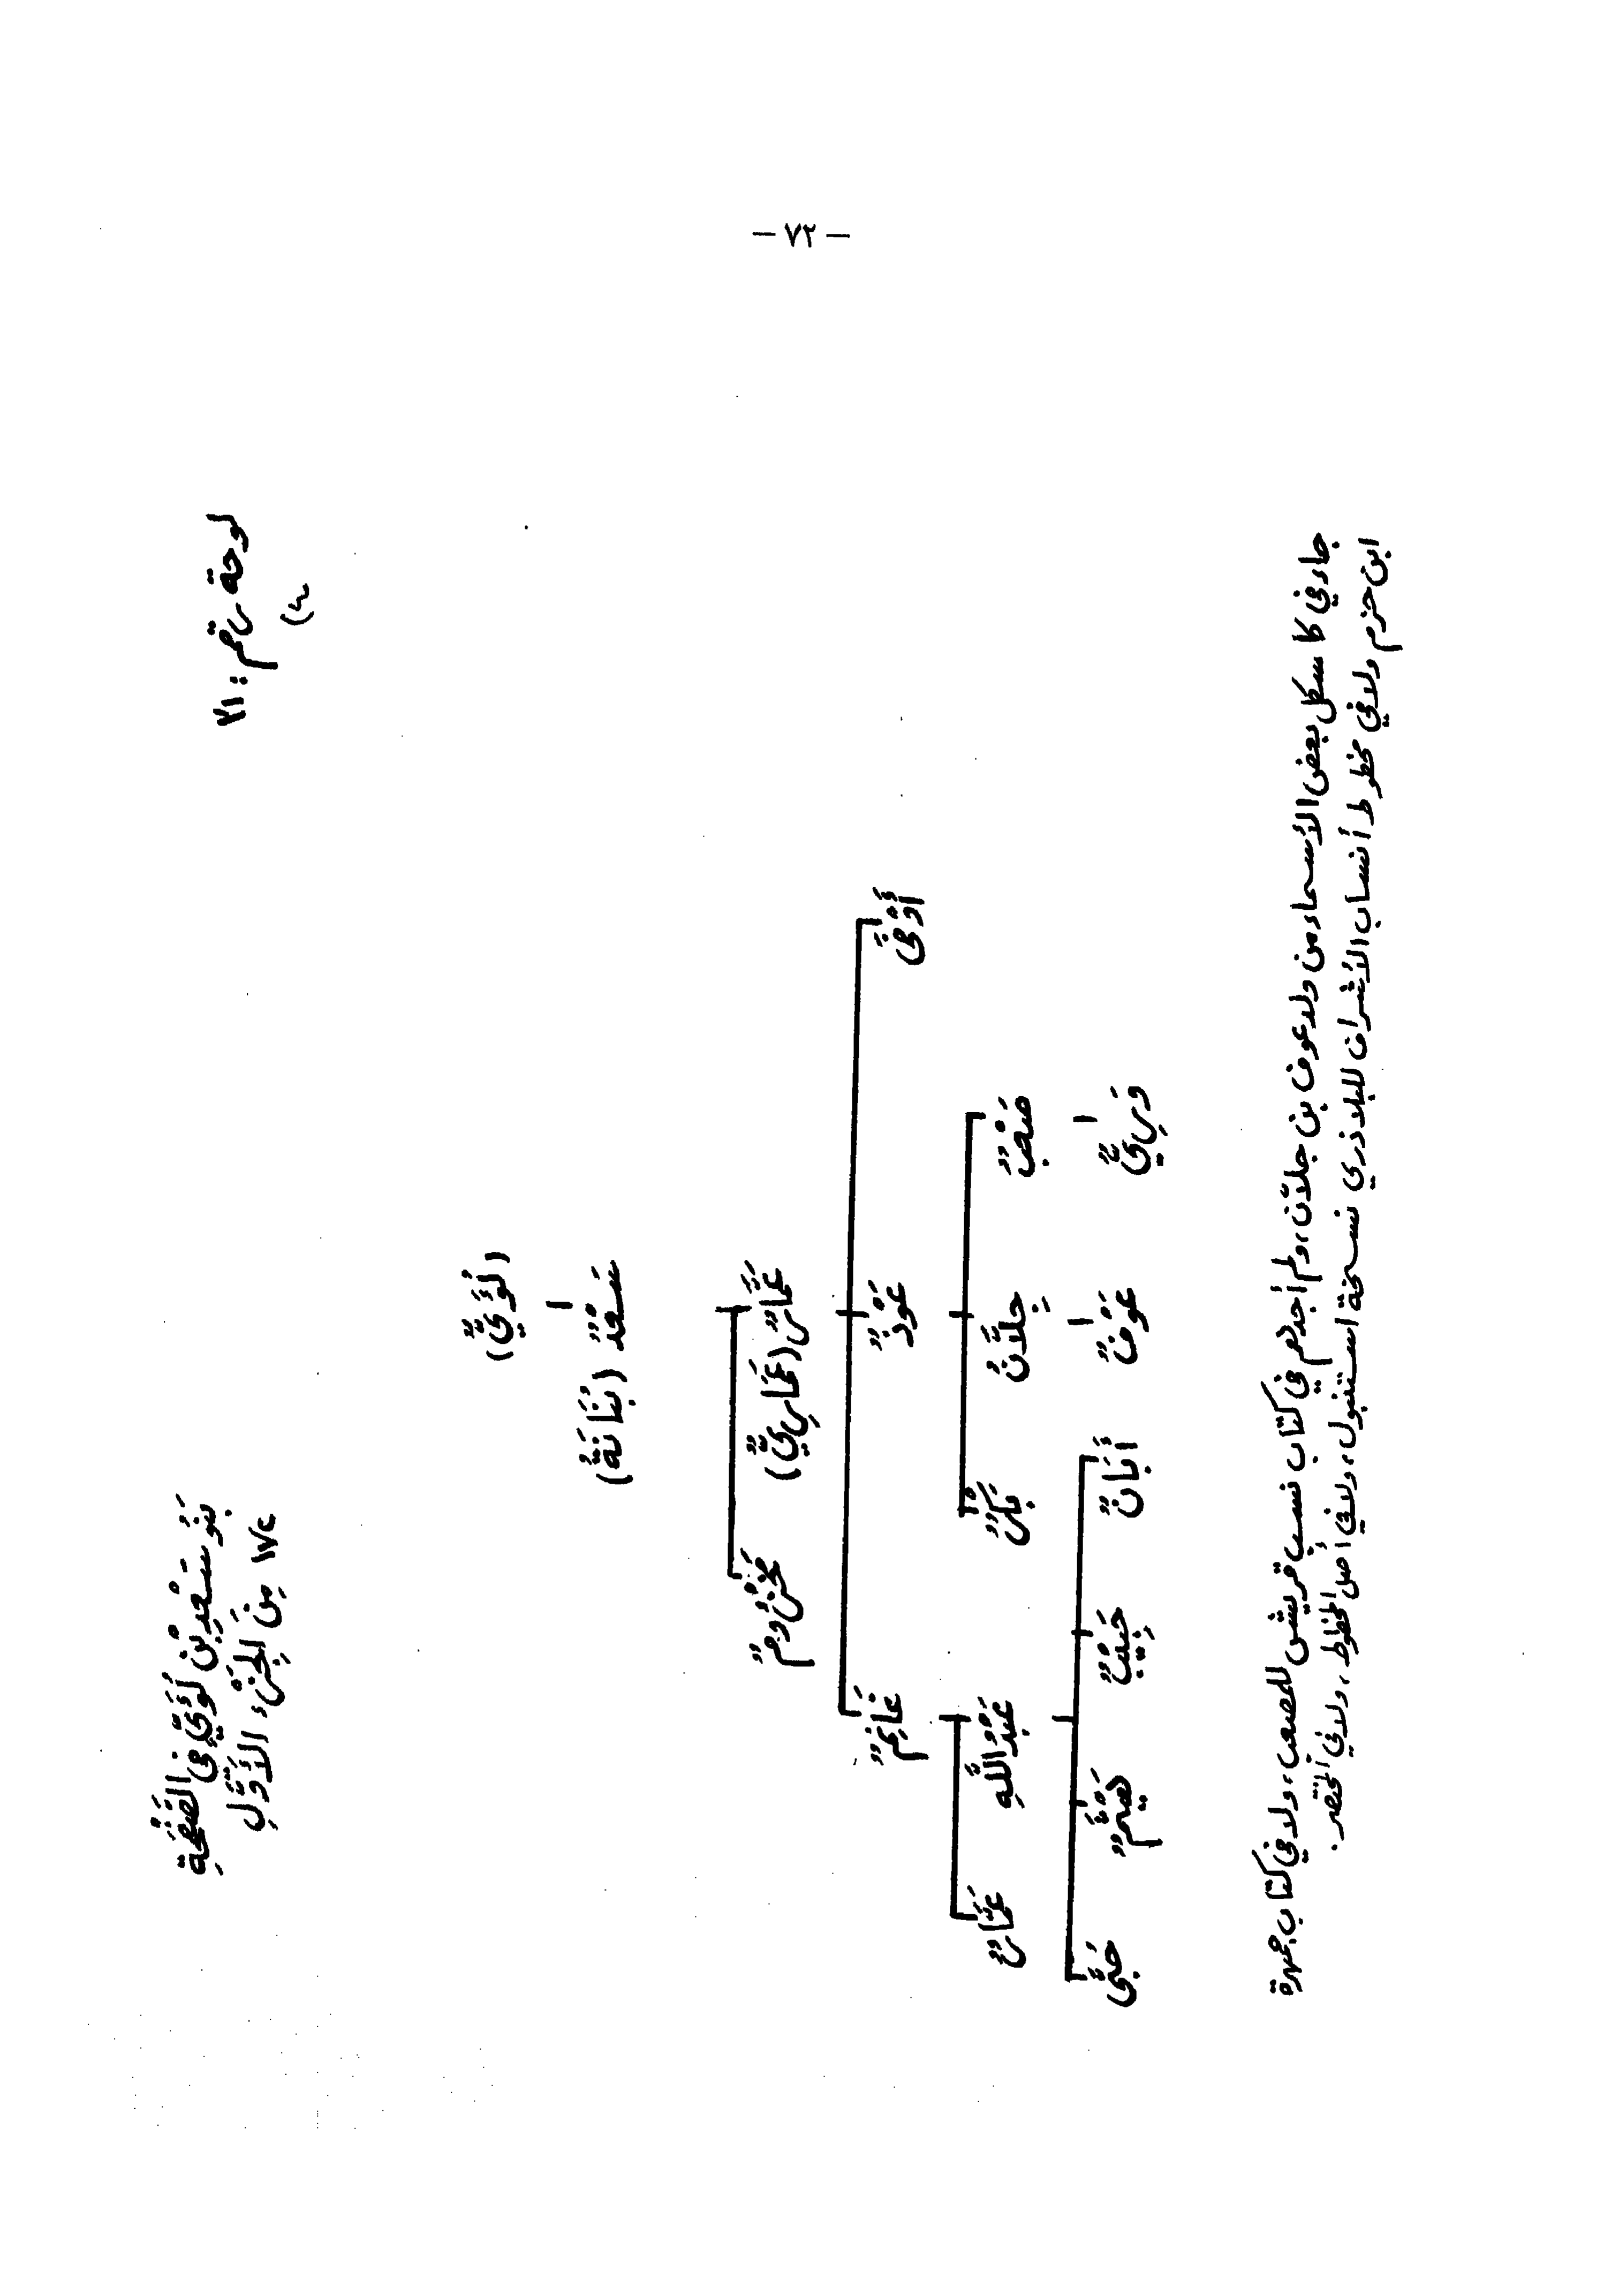 - ٧٢ -
لوحة رقم :
بَنُو سَعْدِ بْنِ لُؤَيٍّ فِي الصَّفْحَةِ
مِنَ الجُزْءِ الأَوَّلِ
(لُؤَيٌّ)
سَعْدٌ (بُنَانَةُ)
عَمَّارٌ (عَمَّارِيٌّ) مَخْزُومٌ
أَوْفَى عَوْذٌ غَانِمٌ
صَعْبٌ جِلَّانُ بَكْرٌ عَبْدُ اللَّهِ عَمَّارٌ
عَوْفٌ أَبَانٌ حَبِيْبٌ هَيْثَمٌ
جاء في كاسكل بعض الأسماء من ولد عوف بن جلّان، ولم أجدهم في كتاب نسب قريش للمصعب، ولا في كتاب جمهرة
ابن حزم ولا في مخطوط أنساب الأشراف للبلاذري نسخة استنبول، ولا في أصل المخطوط، ولا في المختصر.